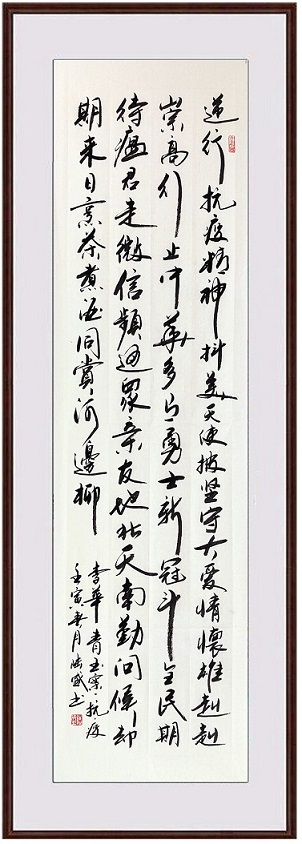 逆行抗疫精神抖美天使披坚守大爱情懷雄赳赳
崇高行止中華多少勇士新冠斗全民期
待瘟君走微信頻通眾亲友地北天南勤问候却
期来日烹茶煮酒同賞河邊柳
李華青玉案抗疫
壬寅春月盛书